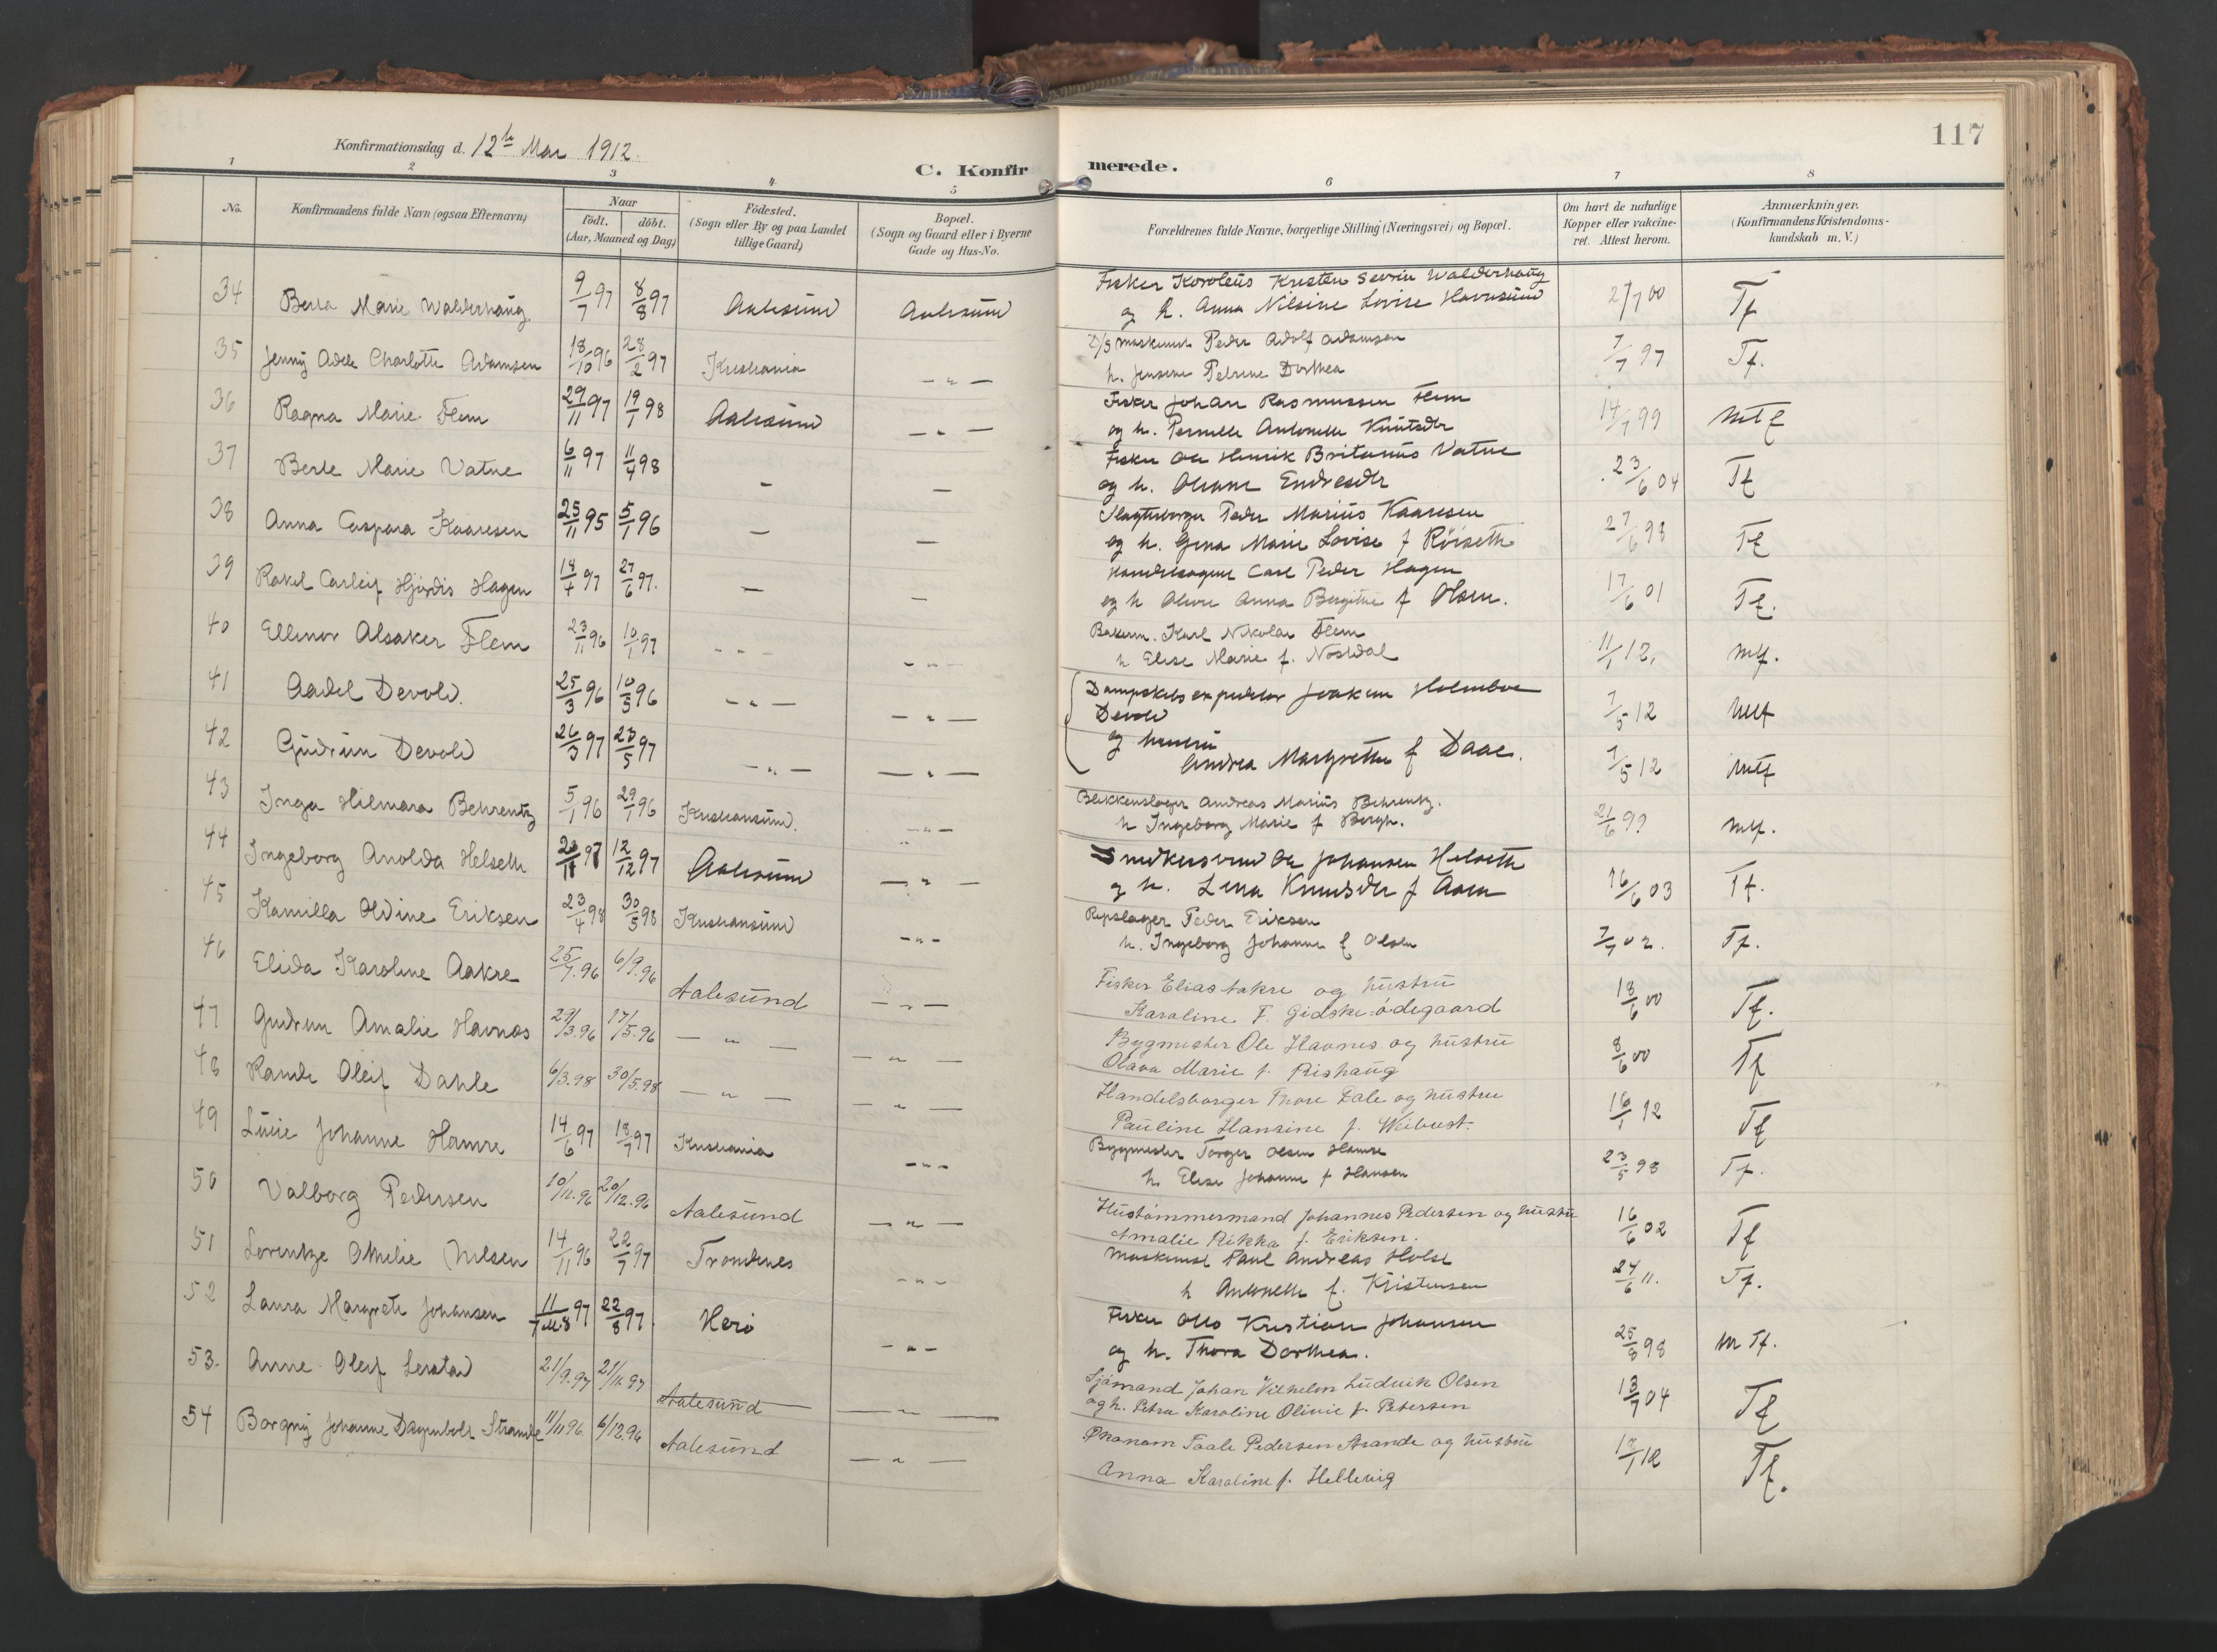 117
Konfirmationsdag d. 12te Mai 1912.
C. Konfirmerede.
1 2 3 4 5 6 7 8
No.
Konfirmandens fulde Navn (ogsaa Efternavn)
Naar
födt. döbt.
(Aar, Maaned og Dag)
Födested.
(Sogn eller By og paa Landet
tillige Gaard)
Bopæl.
(Sogn og Gaard eller i Byerne
Gade og Hus-No.
Forældrenes fulde Navne, borgerlige Stilling (Næringsvei) og Bopæl.
Om havt de naturlige
Kopper eller vakcine-
ret. Attest herom.
Anmærkninger.
(Konfirmandens Kristendoms-
kundskab m. V.)
34 Berta Marie Walderhaug. 9/7 97 8/8 97 Aalesund Aalesund Fisker Karolius Kristen Severin Walderhaug
og h. Anna Nilsine Lovise Havnsund 27/7 00 Tf
35 Jenny Adele Charlotte Adamsen 18/10 96 28/2 97 Kristiania — " — D/S maskinist Peder Adolf Adamsen
h. Jensine Petrine Dorthea 7/7 97 Tf.
36 Ragna Marie Flem 29/11 97 19/1 98 Aalesund — " — Fisker Johan Rasmussen Flem
og h. Pernelle Antonette Knutsdtr 14/7 99 mtf
37 Berte Marie Vatne 6/11 97 11/4 98 — — Fisker Ole Henrik Britanus Vatne
og h. Oleane Endresdtr 23/6 04 Tf
38 Anna Caspara Kaaresen 25/11 95 5/1 96 — — Slagterborger Peder Marius Kaaresen
og h. Gina Marie Lovise f Röiseth 27/6 98 Tf
39 Rakel Carleif Hjördis Hagen 14/4 97 27/6 97. — — Handelsagent Carl Peder Hagen
og h Oline Anna Bergitte f Olsen. 17/6 01 Tf.
40 Ellinor Alsaker Flem 23/11 96 10/1 97 - " - - " - Bakerm. Karl Nikolai Flem
h Elise Marie f. Nostdal 11/1 12. mtf.
41 Aadel Devold. 25/3 96 10/5 96 — " — — " — Dampskibsexpeditör Joakim Holmboe
Devold 7/5 12 mtf
42 Gudrun Devold 26/3 97 23/5 97 — " — — " — og hustru
Andrea Margrethe f Daae. 7/5 12 mtf
43 Inga Hilmara Behrentz 5/1 96 29/1 96 Kristiansund. - " - Blikkenslager Andreas Marius Behrentz.
h Ingeborg Marie f Bergh. 21/6 99 mtf.
44 Ingeborg Anolda Helseth 20/11 97 12/12 97 Aalesund — " — Snedkersvend Ole Johansen Helseth
og h. Lina Knudsdtr f Aasen 16/6 03 Tf.
45 Kamilla Oldine Eriksen 23/4 98 30/5 98 Kristiansund - " - Repslager Peder Eriksen
h. Ingeborg Johanne f Olsen 7/7 02. Tf.
46 Elida Karoline Aakre 25/7.96 6/9.96 Aalesund — " — Fisker Elias Aakre og hustru
Karoline F. Gidske-ödegaard 18/6 00 Tf.
47 Gudrun Amalie Havnæs 29/3.96 17/5.96 — " — — " — Bygmester Ole Havnes og hustru
Olava Marie f. Rishaug 8/6 00 Tf
48 Randi Oleif Dahle 6/3.98 30/5.98 — " — — " — Handelsborger Thore Dale og hustru
Pauline Hansine f. Weibust. 16/1 12 Tf
49 Lulie Johanne Hamre 14/6 97 18/7 97 Kristiania - " - Byggmester Torger Olsen Hamre
h. Elise Johanne f Hansen 23/5 98 Tf.
50 Valborg Pedersen 10/11.96 20/12.96 Aalesund — " — Hustömmermand Johannes Pedersen og hustru
Amalie Rikka f. Eriksen. 16/6 02 Tf
51 Lorentze Othelie Nilsen 14/11 96 22/7 97 Trondenes - " - Maskinist Paul Andreas Holst
h Antonette f. Kristensen 24/6 11. Tf.
52 Laura Margrete Johansen 11/7 97 22/8 97. Herö - " - Fisker Otto Kristian Johansen
og h. Thora Dorthea. 25/8 98 m Tf.
53. Anne Oleif Lerstad 21/9.97 21/11.97 Aalesund — " — Sjömand Johan Vilhelm Ludvik Olsen
og h. Petra Karoline Olivie f. Petersen 13/7 04 Tf
54 Borgny Johanne Dagenbolt Strande 11/11 96. 6/12.96 Aalesund — " — Ökonom Taale Pedersen Strande og hustru
Anna Karoline f. Hellevig 12 Tf.